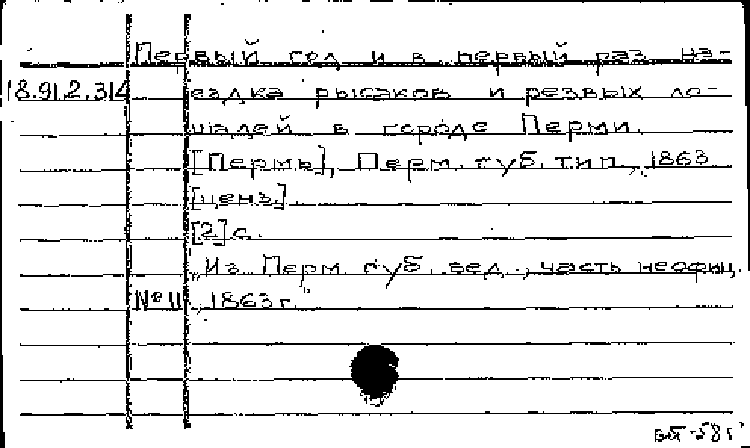 Первый год и в первый раз на-
18.91.2.314 ездка рысаков и резвых ло-
шадей в городе Перми.
[Пермь], Перм. губ. тип., 1863
[ценз.]
[2] с.
„Из Перм. губ. вед., часть неофиц.
№ 11, 1863 г."